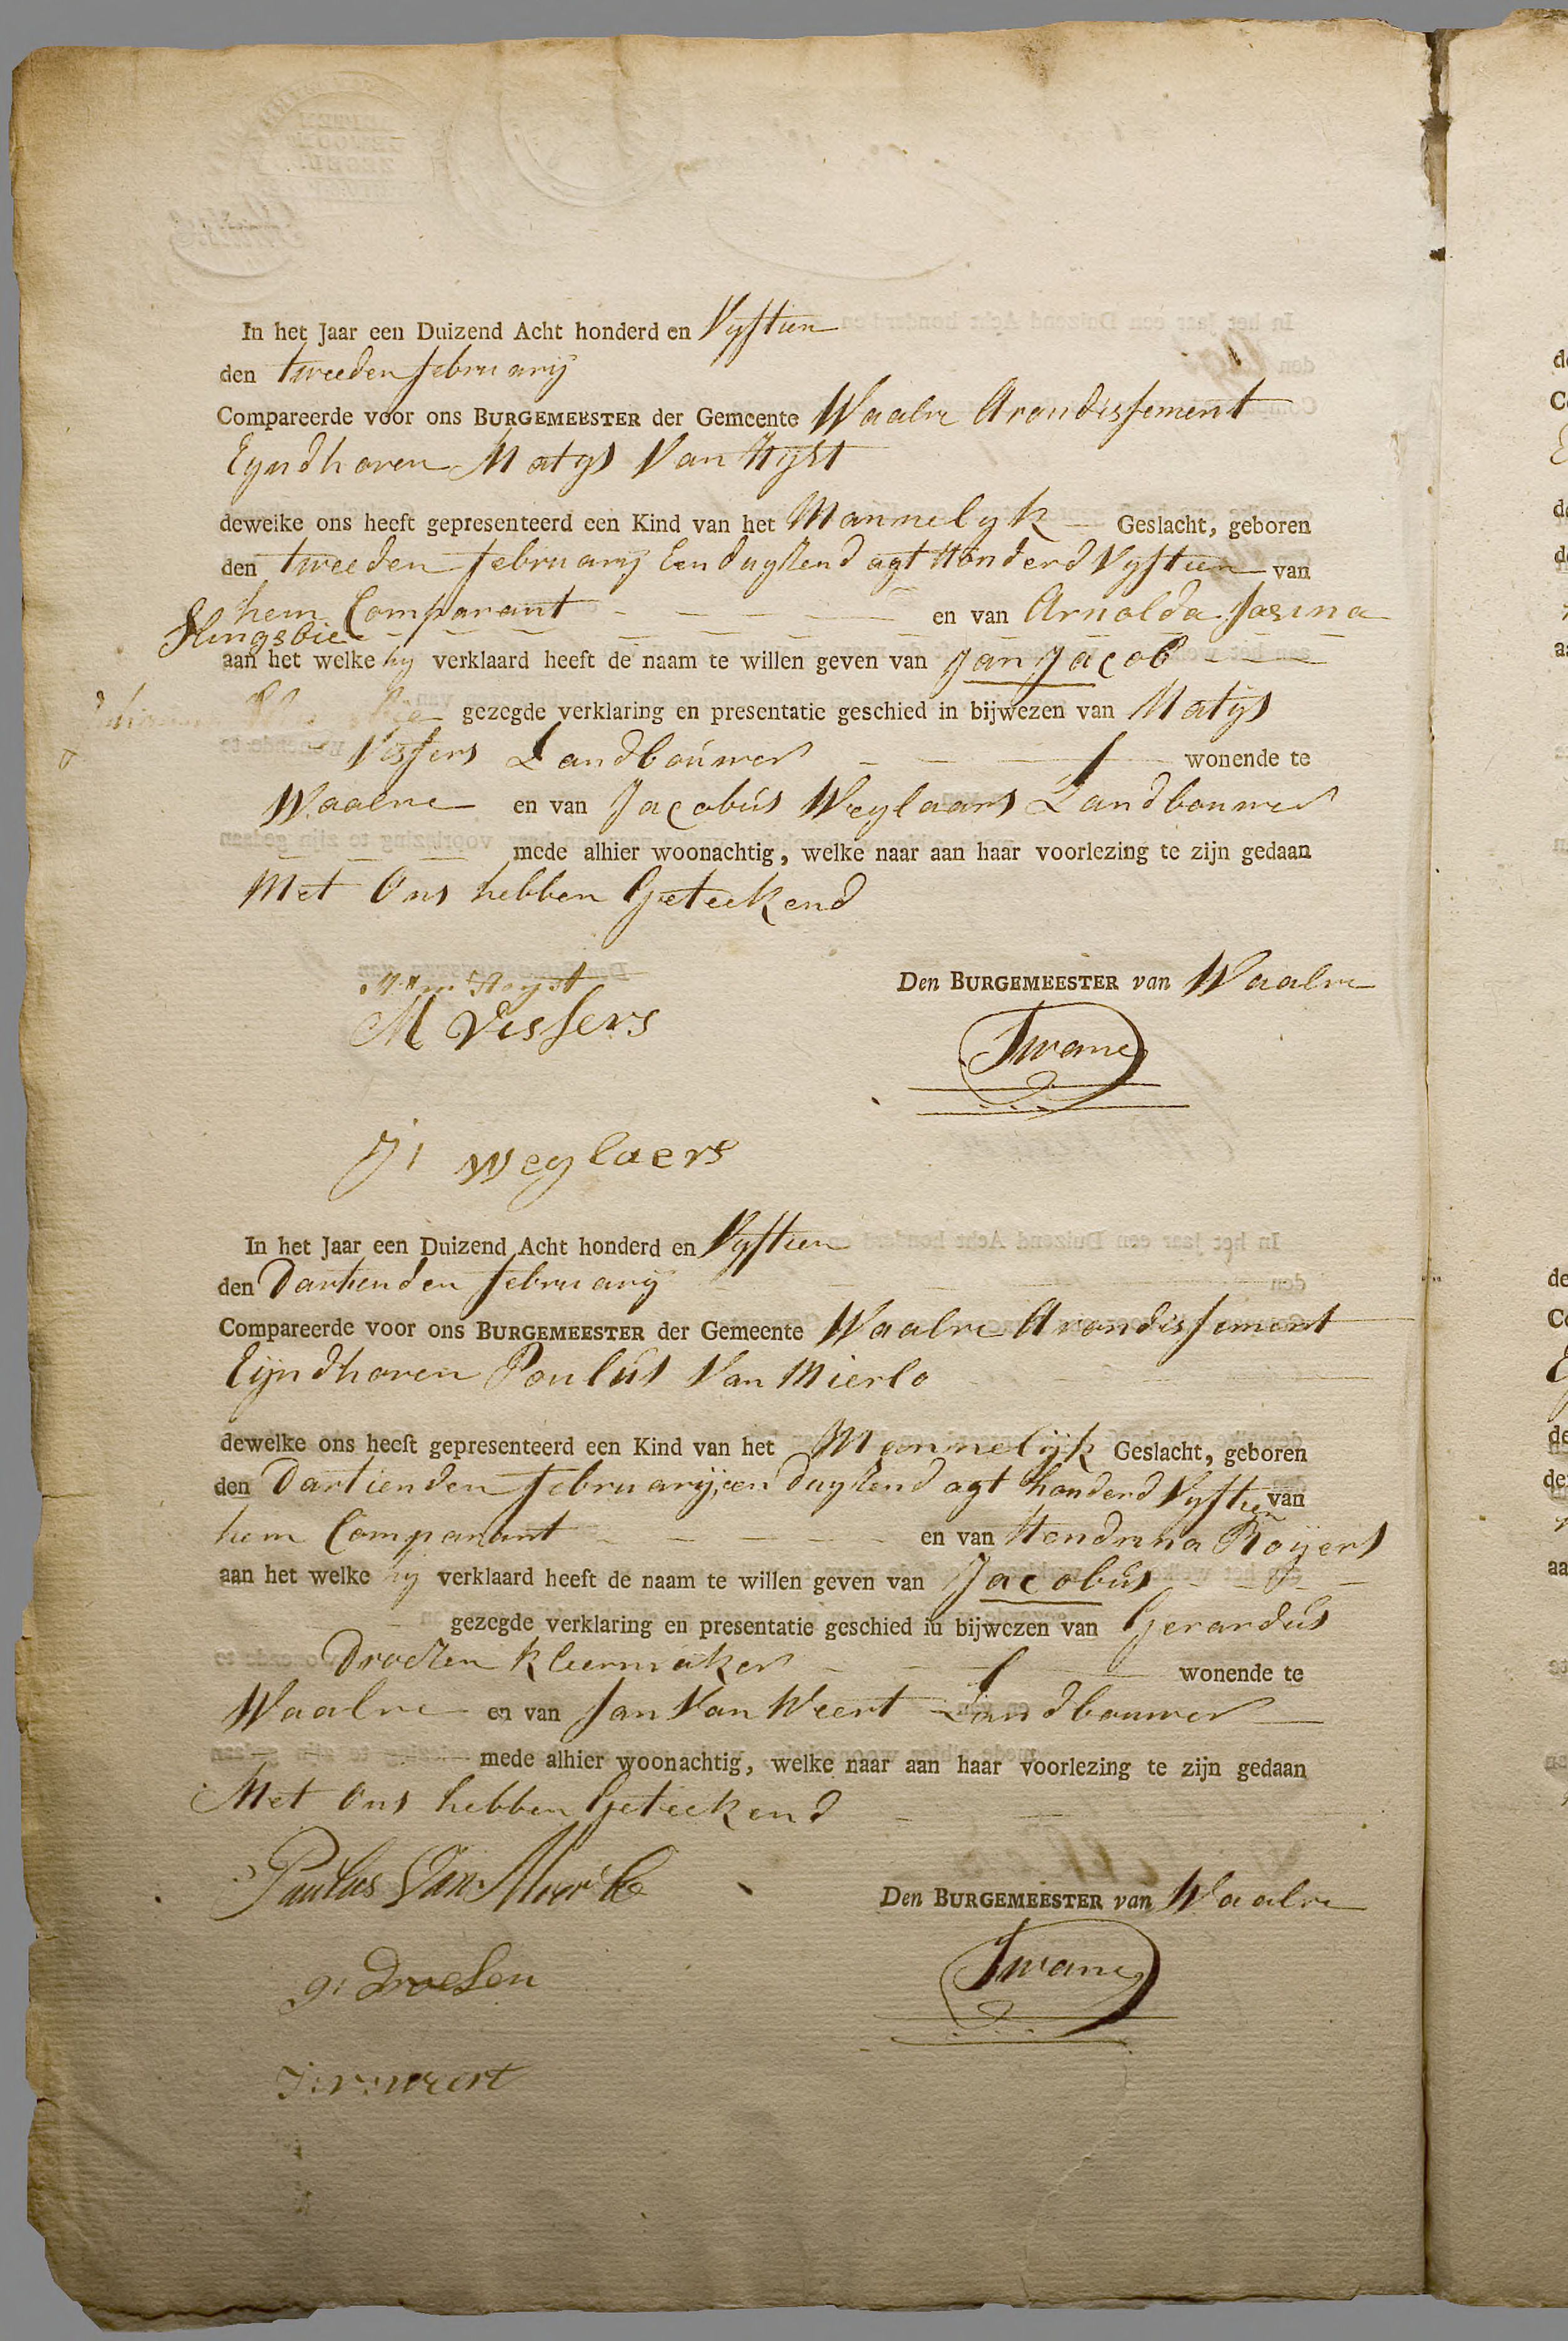 In het Jaar een Duizend Acht honderd en Vyftien
den tweeden february
Compareerde voor ons BURGEMEESTER der Gemeente Waalre Arondissement
Eyndhoven Matys Van Hyst
dewelke ons heeft gepresenteerd een Kind van het Mannelyk Geslacht, geboren
den tweeden february Een duyzend agt Honderd Vyftien van
hem Comparant en van Arnolda Jasina
Slingsbie
aan het welke hy verklaard heeft de naam te willen geven van Jan Jacob
gezegde verklaring en presentatie geschied in bijwezen van Matys
Vissers Landbouwer wonende te
Waalre en van Jacobus Weylaars Landbouwer
mede alhier woonachtig, welke naar aan haar voorlezing te zijn gedaan
Met Ons hebben Geteekend
M Vissers
Den BURGEMEESTER van Waalre
Swane
J: weylaers
In het Jaar een Duizend Acht honderd en Vyftien
den Dartienden february
Compareerde voor ons BURGEMEESTER der Gemeente Waalre Arondissement
Eijndhoven Poulus Van Mierlo
dewelke ons heeft gepresenteerd een Kind van het Mannelijk Geslacht, geboren
den Dartienden february een duyzend agt honderd Vyftien van
hem Comparant en van Hendrina Roijers
aan het welke hy verklaard heeft de naam te willen geven van Jacobus
gezegde verklaring en presentatie geschied in bijwezen van Gerardus
Droesen Kleermaker wonende te
Waalre en van Jan Van Weert Landbouwer
mede alhier woonachtig, welke naar aan haar voorlezing te zijn gedaan
Met Ons hebben Geteekend
Paulus Van
Den BURGEMEESTER van Waalre
g: Droesen
Swane
J: v: weert